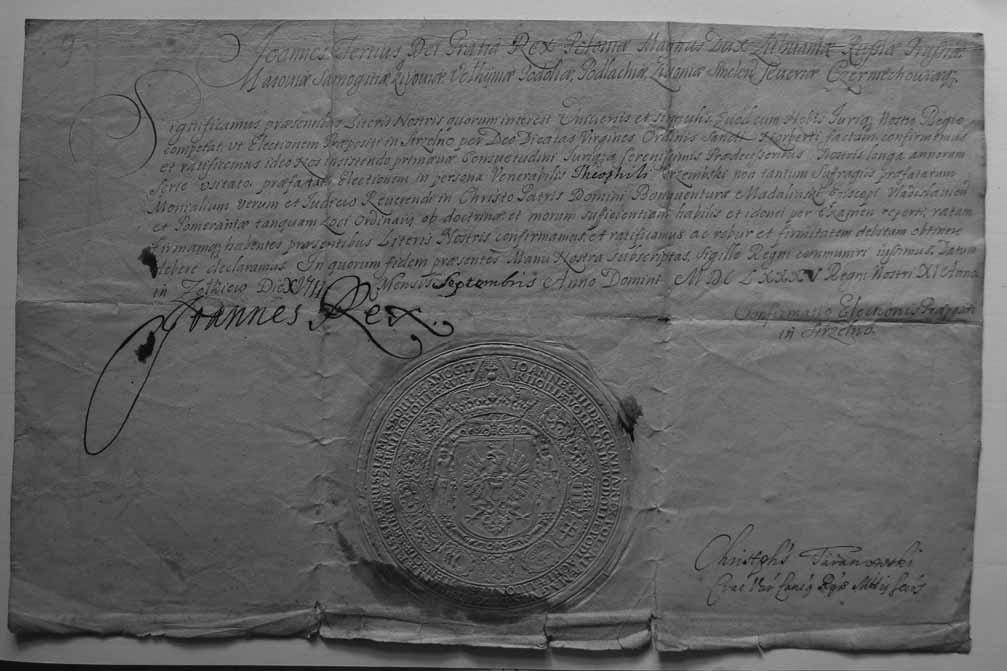 Joannes Tertius Dei Gratia Rex Poloniæ Magnus Dux Lithuaniæ Russiæ Prussiæ
Masoviæ Samogitiæ Kijoviæ Volhyniæ Podoliæ Podlachiæ Livoniæ Smolen Severiæ Czerniechoviæq;
Significamus præsentibus Literis Nostris quorum interest Universis et singulis, Quod cum Nobis Juriq; Nostro Regio
competat, ut Electionem Præpositi in Strzelno per Deo Dicatas Virgines Ordinis Sancti Norberti, factam confirmemus
et ratificemus ideo Nos insistendo primævæ Consuetudini Juriq; a Serenissimis Prædecessoribus Nostris longa annorum
serie usitato, præfatam Electionem in persona Venerabilis Theophili Trzembski non tantum Sufragijs præfatarum
Monialium verum et Judicio Reverendi in Christo Patris Domini Bonaventuræ Madalinski Episcopi Wladislavien
et Pomeraniæ tanquam Loci Ordinarij ob doctrinæ et morum sufficientiam habilis et idonei per Examen reperti, ratam
firmamq; habentes præsentibus Literis Nostris confirmamus et ratificamus ac robur et firmitatem debitam obtinere
debere declaramus. In quorum fidem præsentes Manu Nostra Subscriptas, Sigillo Regni communiri iussimus. Datum
in Zolkiew Die Mensis Septembris Anno Domini MDCLXXXV Regni Nostri XI Anno
Joannes Rex
Confirmatio Electionis Præpositi
in Strzelno.
JOANNES III DEI GRATIA REX POLONI
Christoph Taranowski